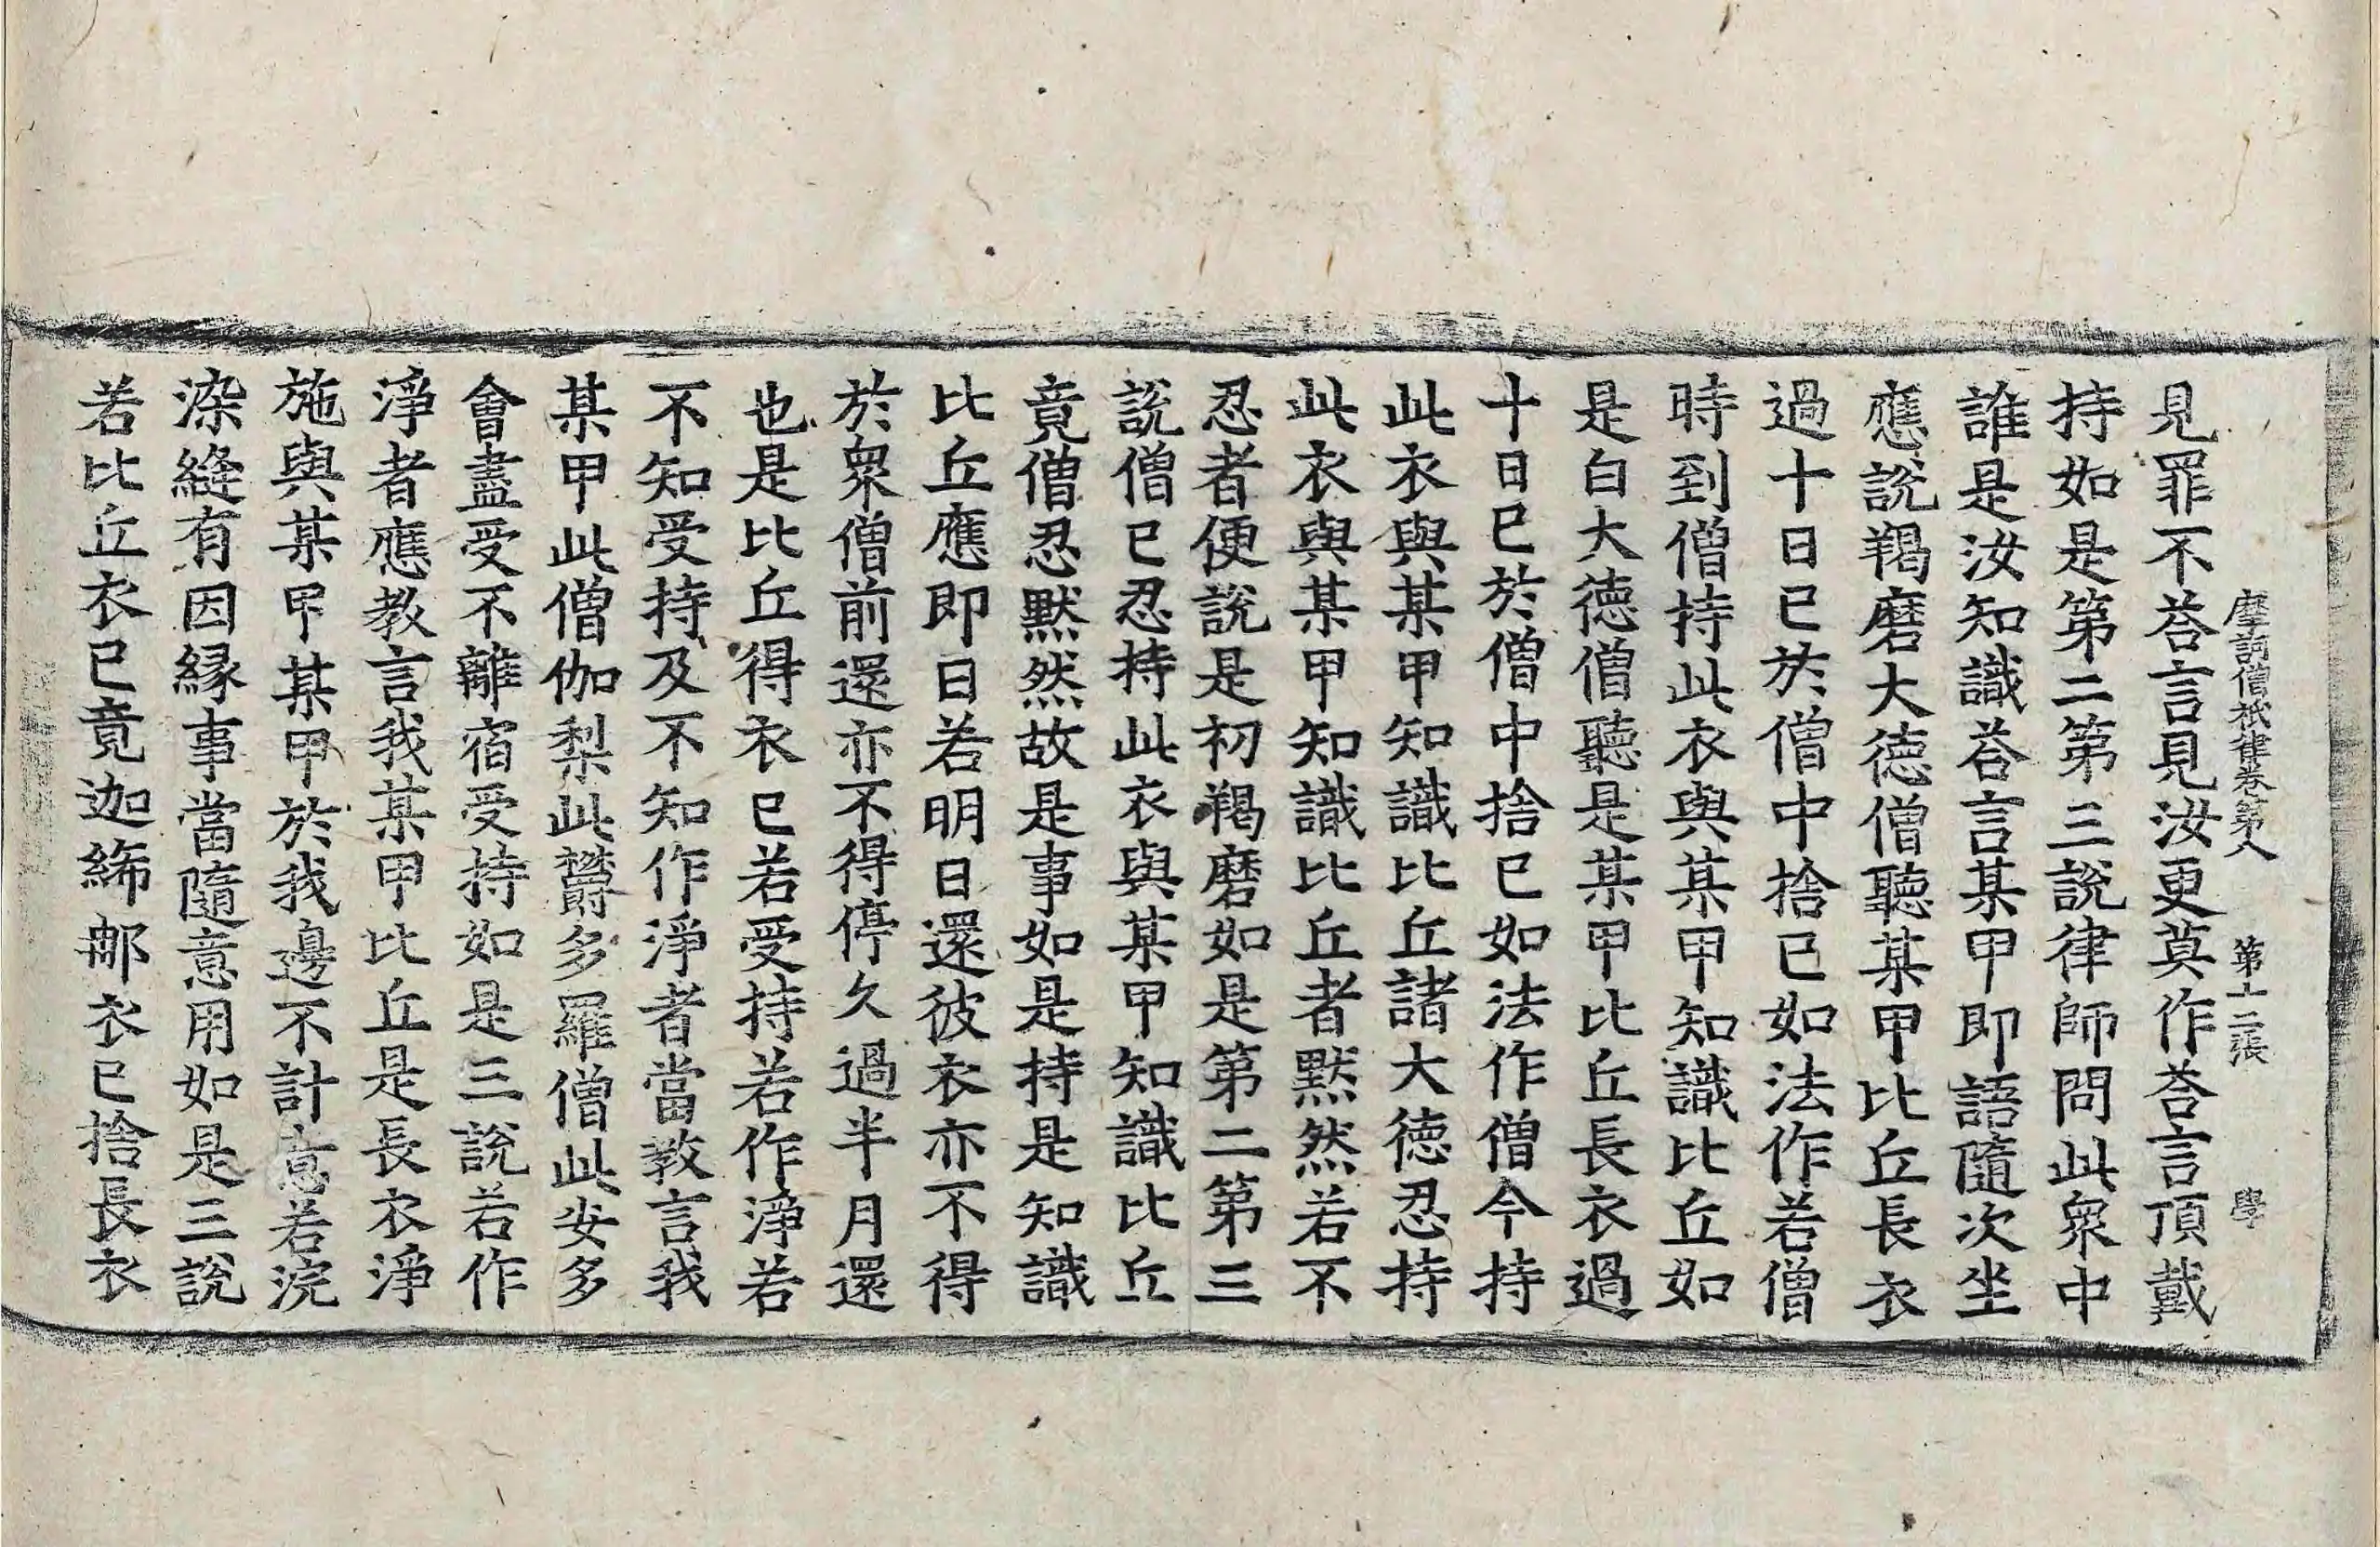 摩訶僧祇律卷第八　第十二張　學
見罪不荅言見汝更莫作荅言頂戴
持如是第二第三說律師問此衆中
誰是汝知識荅言某甲即語隨次坐
應說羯磨大德僧聽某甲比丘長衣
過十日已於僧中捨已如法作若僧
時到僧持此衣與某甲知識比丘如
是白大德僧聽是某甲比丘長衣過
十日已於僧中捨已如法作僧今持
此衣與某甲知識比丘諸大德忍持
此衣與某甲知識比丘者黙然若不
忍者便說是初羯磨如是第二第三
說僧已忍持此衣與某甲知識比丘
竟僧忍黙然故是事如是持是知識
比丘應即日若明日還彼衣亦不得
於衆僧前還亦不得停久過半月還
也是比丘得衣已若受持若作淨若
不知受持及不知作淨者當教言我
某甲此僧伽梨此欝多羅僧此安多
會盡受不離宿受持如是三說若作
淨者應教言我某甲比丘是長衣淨
施與某甲某甲於我邊不計意若浣
染縫有因緣事當隨意用如是三說
若比丘衣已竟迦絺那衣已捨長衣